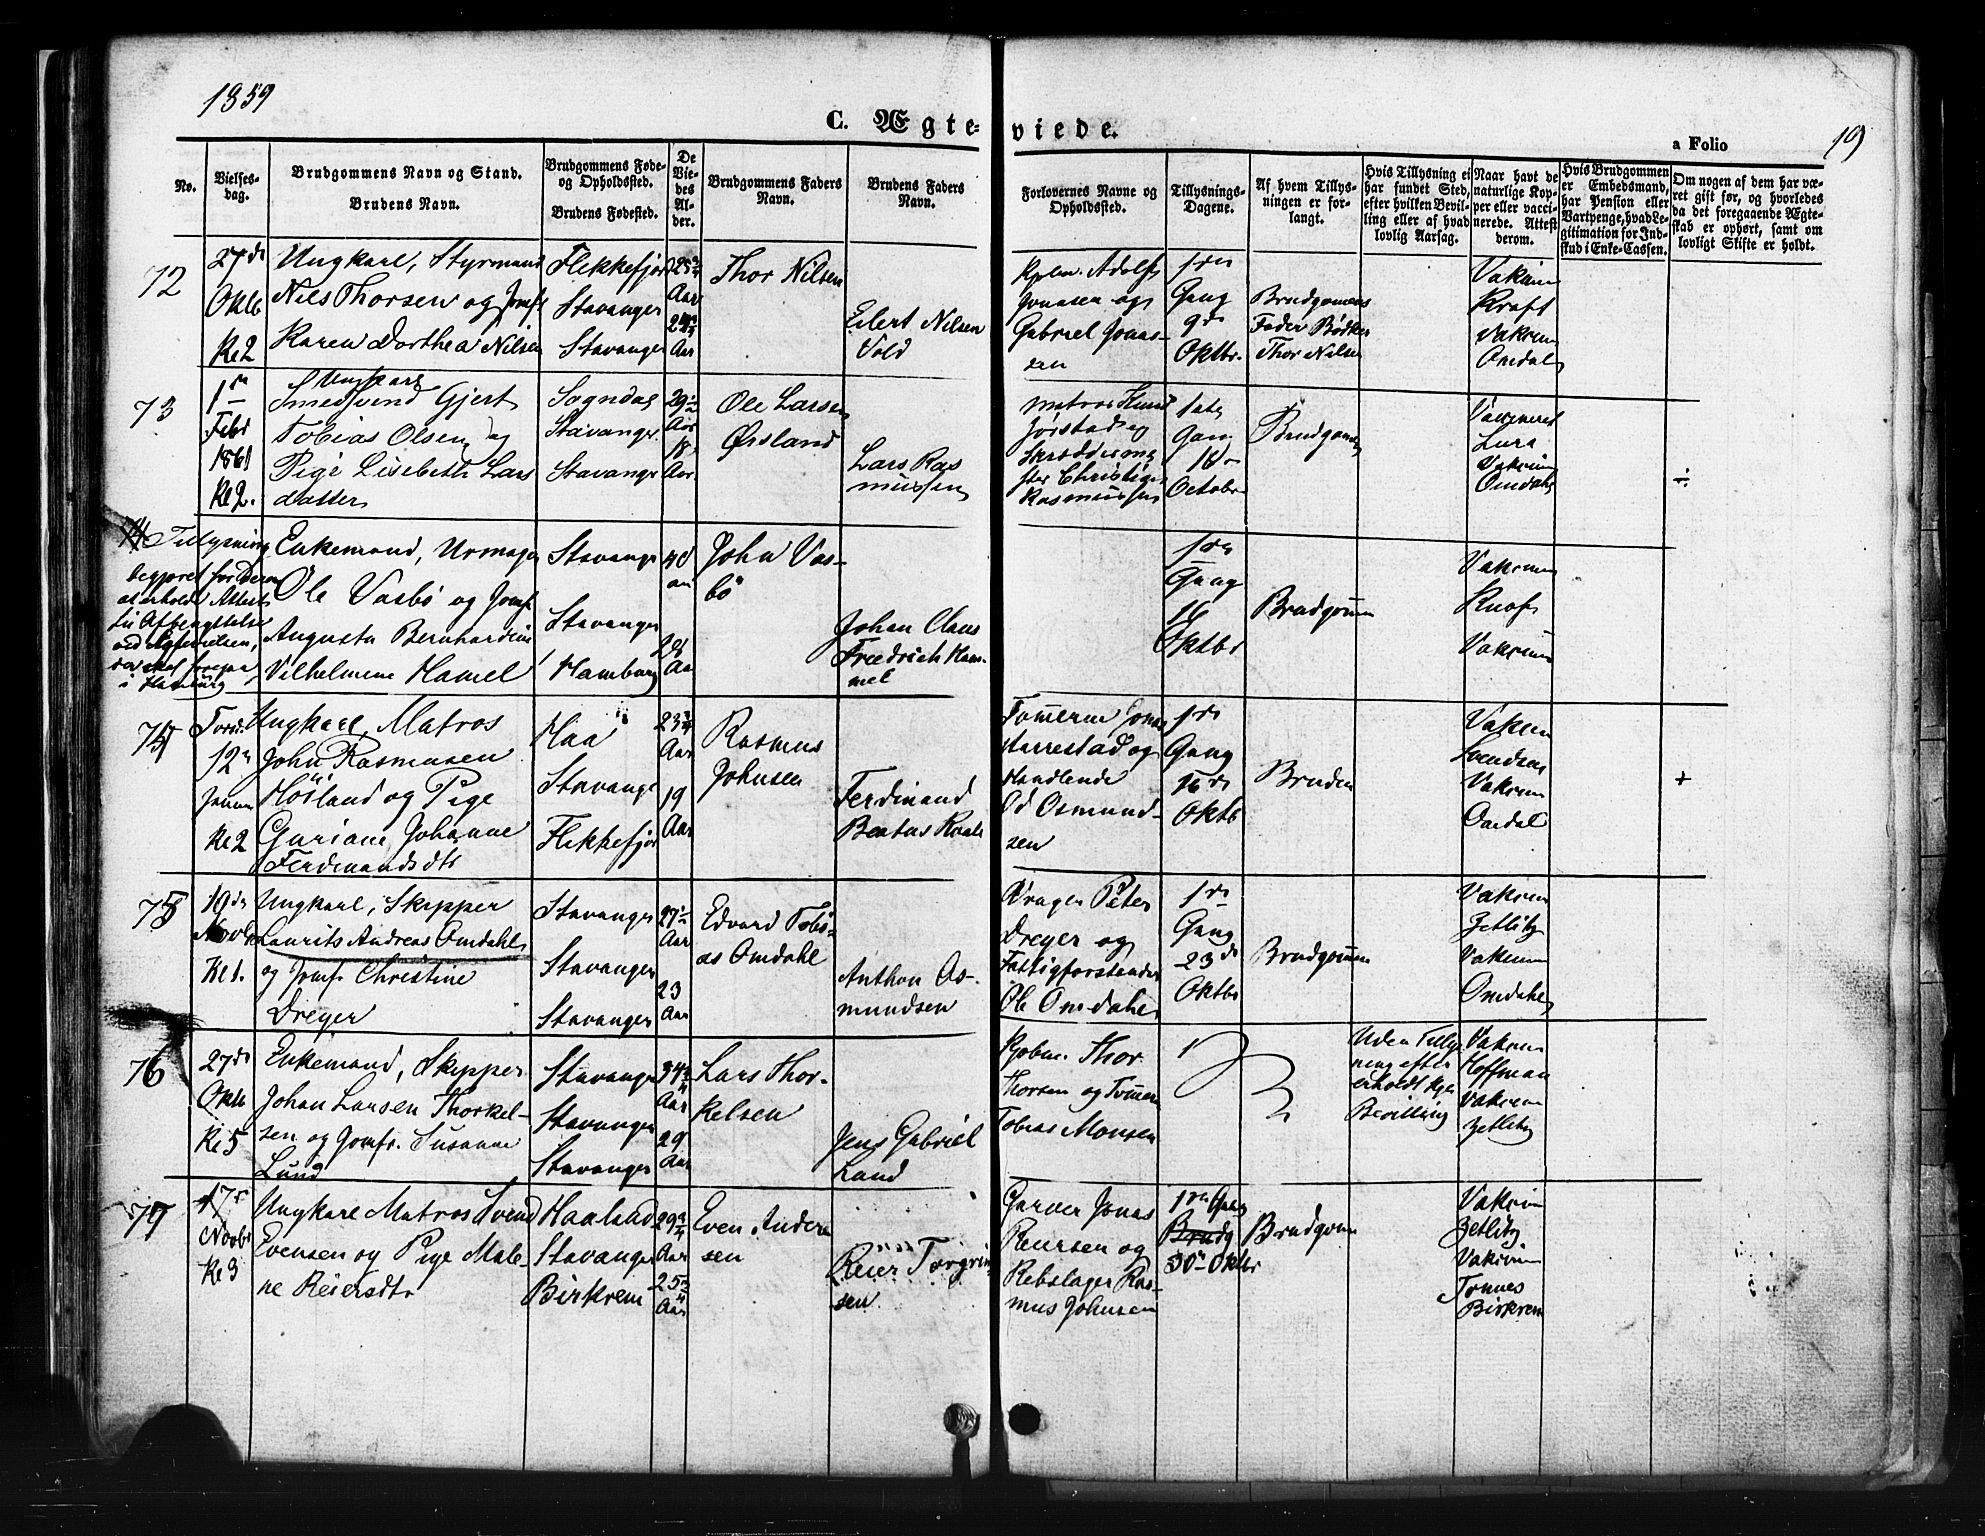 1859
109
C. Ægteviede.
a Folio
No.
Vielsesdag.
Brudgommens Navn og Stand.
Brudens Navn.
Brudgommens Føde- og Opholdssted.
Brudens Fødested.
De Viedes Alder.
Brudgommens Faders Navn.
Brudens Faders Navn.
Forlovernes Navne og Opholdssted.
Tillysnings-Dagene.
Af hvem Tillysningen er forlangt.
Hvis Tillysning ei har fundet Sted, efter hvilken Bevilling eller af hvad lovlig Aarsag.
Naar havt de naturlige Kopper eller vaccinerede. Attest derom.
Hvis Brudgommen er Embedsmand, har Pension eller Vartpenge, hvad Legitimation for Indskud i Enke-Cassen.
Om nogen af dem har været gift før, og hvorledes da det foregaaende Ægteskab er ophørt, samt om lovligt Skifte er holdt.
72
27de
Oktb
Kl 2
Ungkarl, Styrmand
Nils Thorsen og Jomf
Karen Dorthea Nilsen
Flekkefjor
Stavanger
Stavanger
Aar
Aar
Thor Nilsen
Eilert Nilsen
Vold
Adolf
Jonassen og
Gabriel Jonas-
sen
1ste
Gang
9de
Oktbr.
Brudgomens
Fader Bødker
Thor Nilsen
Kraft
Omdal
73
1ste
Febr
1861
Kl 2.
Ungkarl
Smedsvend Gjert
Tobias Olsen og
Pige Lisebeth Lars
datter
Sogndal
Stavanger
Stavanger
Aar
18
Aar
Ole Larsen
Ørsland
Lars Ras
mussen
Matros Knud
Jørstad og
Skreddderme
ster Christian
Rasmussen
1ste
Gang
16
October
Brudgomen
Lura
Omdahl
÷
74 Tillysning
begjæret for Deres
at erholde Attest
i Hamburg
Enkemand, Urmager
Ole Vasbø og Jomf.
Augusta Bernhardine
Vilhelmine Hamel
Stavanger
Stavanger
Hamburg
40
Aar
John Vas-
bø
Johan Claus
Friedrich Ham-
mel
1ste
Gang
16
Oktbr
Brudgomen
Knof
74
Torsd.
12te
Kl 2
Ungkarl, Matros
John Rasmusen
Høiland og Pige
Guriane Johanne
Ferdinandsdtr
Haa
Stavanger
Flekkefjor
23 3/4
Aar
19
Aar
Rasmus
Johnsen
Ferdinand
Beatus
Tømmerm Jonas
Harrestad og
Handlende
Od Osmund-
sen
1ste
Gang
16de
Oktb
Bruden
Svendsen
Omdal
+
75
19de
Novb
Kl 1.
Ungkarl, Skipper
Laurits Andreas Omdahl
og Jomf. Christine
Dreyer
Stavanger
Stavanger
Stavanger
27 1/2
Aar
23
Aar
Edvard Tobi-
as Omdahl
Anthon As-
mundsen
Peter
Dreyer og
Fattigforstander
Ole Omdahl
1ste
Gang
23de
Oktbr
Brudgomen
Zetlitz
Omdahl
76
27de
Oktb
Kl 5
Enkemand, Skipper
Johan Larsen Thorkel-
sen og Jomfr. Susanne
Lund
Stavanger
Stavanger
Stavanger
Aar
29
Aar
Lars Thor-
kelsen
Jens Gabriel
Lund
Kjøbm. Thor
Thorsen og Tømm
Tobias Monsen
Uden Tillys
ning efter
erholdt kgl
Bevilling
Hoffman
Zetlitz
77
17de
Novbr
Kl 3
Ungkarl Matros Svend
Evensen og Pige Male-
ne Reiersdtr
Haaland
Stavanger
Birkrem
Aar
25 3/4
Aar
Even Ander
sen
Reier Torgrim
sen
Garver Jonas
Reiersen og
Rebslager Ras-
mus Johnsen
1ste Gang
30te Oktbr
Brudgom
Zetlitz
Tonnes
Birkrem